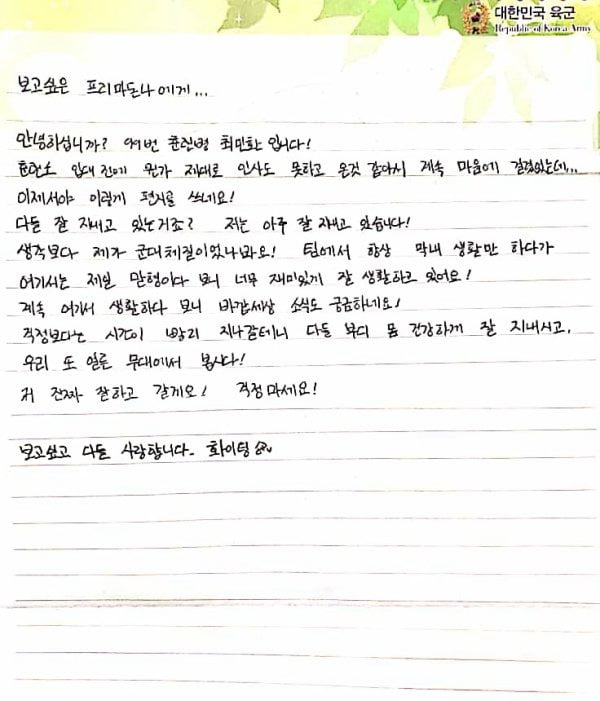 대한민국 육군
Republic of Korea Army
보고싶은 프리마돈나에게...
안녕하십니까? 훈련병 최민환 입니다!
훈련소 입대 전에 뭔가 제대로 인사도 못하고 온것 같아서 계속 마음에 걸렸었는데...
이제서야 이렇게 편지를 쓰네요!
다들 잘 지내고 있는거죠? 저는 아주 잘 지내고 있습니다!
생각보다 제가 군대체질이었나봐요! 팀에서 항상 막내 생활만 하다가
여기서는 제일 맏형이다 보니 너무 재미있게 잘 생활하고 있어요!
계속 여기서 생활하다 보니 바깥세상 소식도 궁금하네요!
걱정보다는 시간이 빨리 지나갈테니 다들 부디 몸 건강하게 잘 지내시고,
우리 또 얼른 무대에서 봅시다!
저 진짜 잘하고 갈게요! 걱정마세요!
보고싶고 다들 사랑합니다. 화이팅